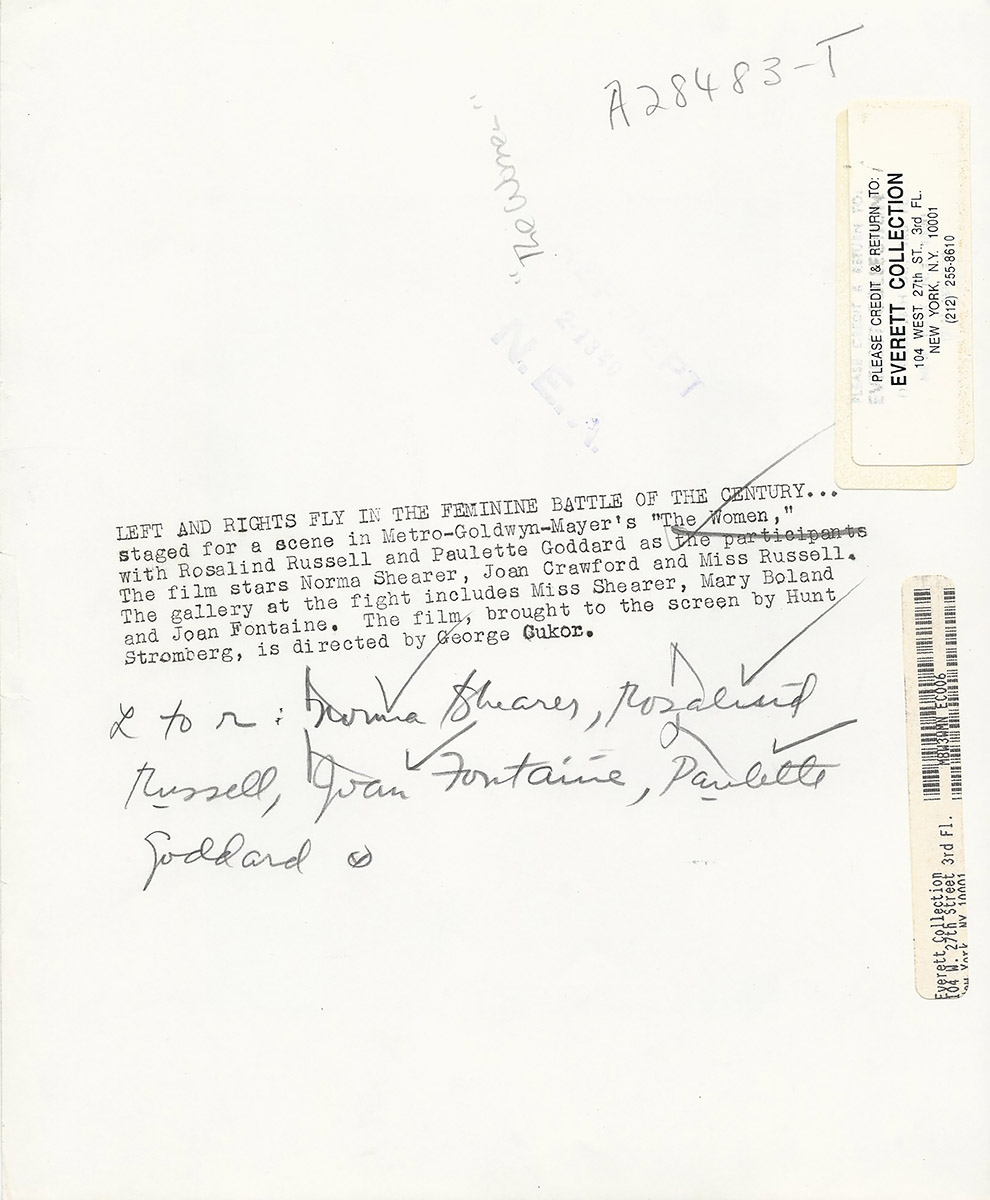 A28483-T
"The Women"
PLEASE CREDIT & RETURN TO:
EVERETT COLLECTION
104 WEST 27th ST., 3rd FL.
NEW YORK, N.Y. 10001
(212) 255-8610
N.E.A.
LEFT AND RIGHTS FLY IN THE FEMININE BATTLE OF THE CENTURY...
staged for a scene in Metro-Goldwyn-Mayer's "The Women,"
with Rosalind Russell and Paulette Goddard as the participants
The film stars Norma Shearer, Joan Crawford and Miss Russell.
The gallery at the fight includes Miss Shearer, Mary Boland
and Joan Fontaine. The film, brought to the screen by Hunt
Stromberg, is directed by George Cukor.
L to r: Norma Shearer, Rosalind
Russell, Joan Fontaine, Paulette
Goddard
M8W3WMN EC006
Everett Collection
104 W. 27th Street 3rd Fl.
New York NY 10001